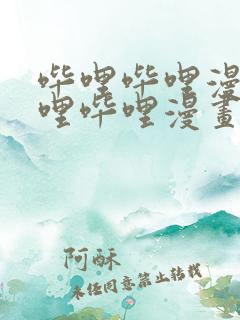 哔哩哔哩漫
哩哔哩漫畫
阿酥
未经同意禁止转载